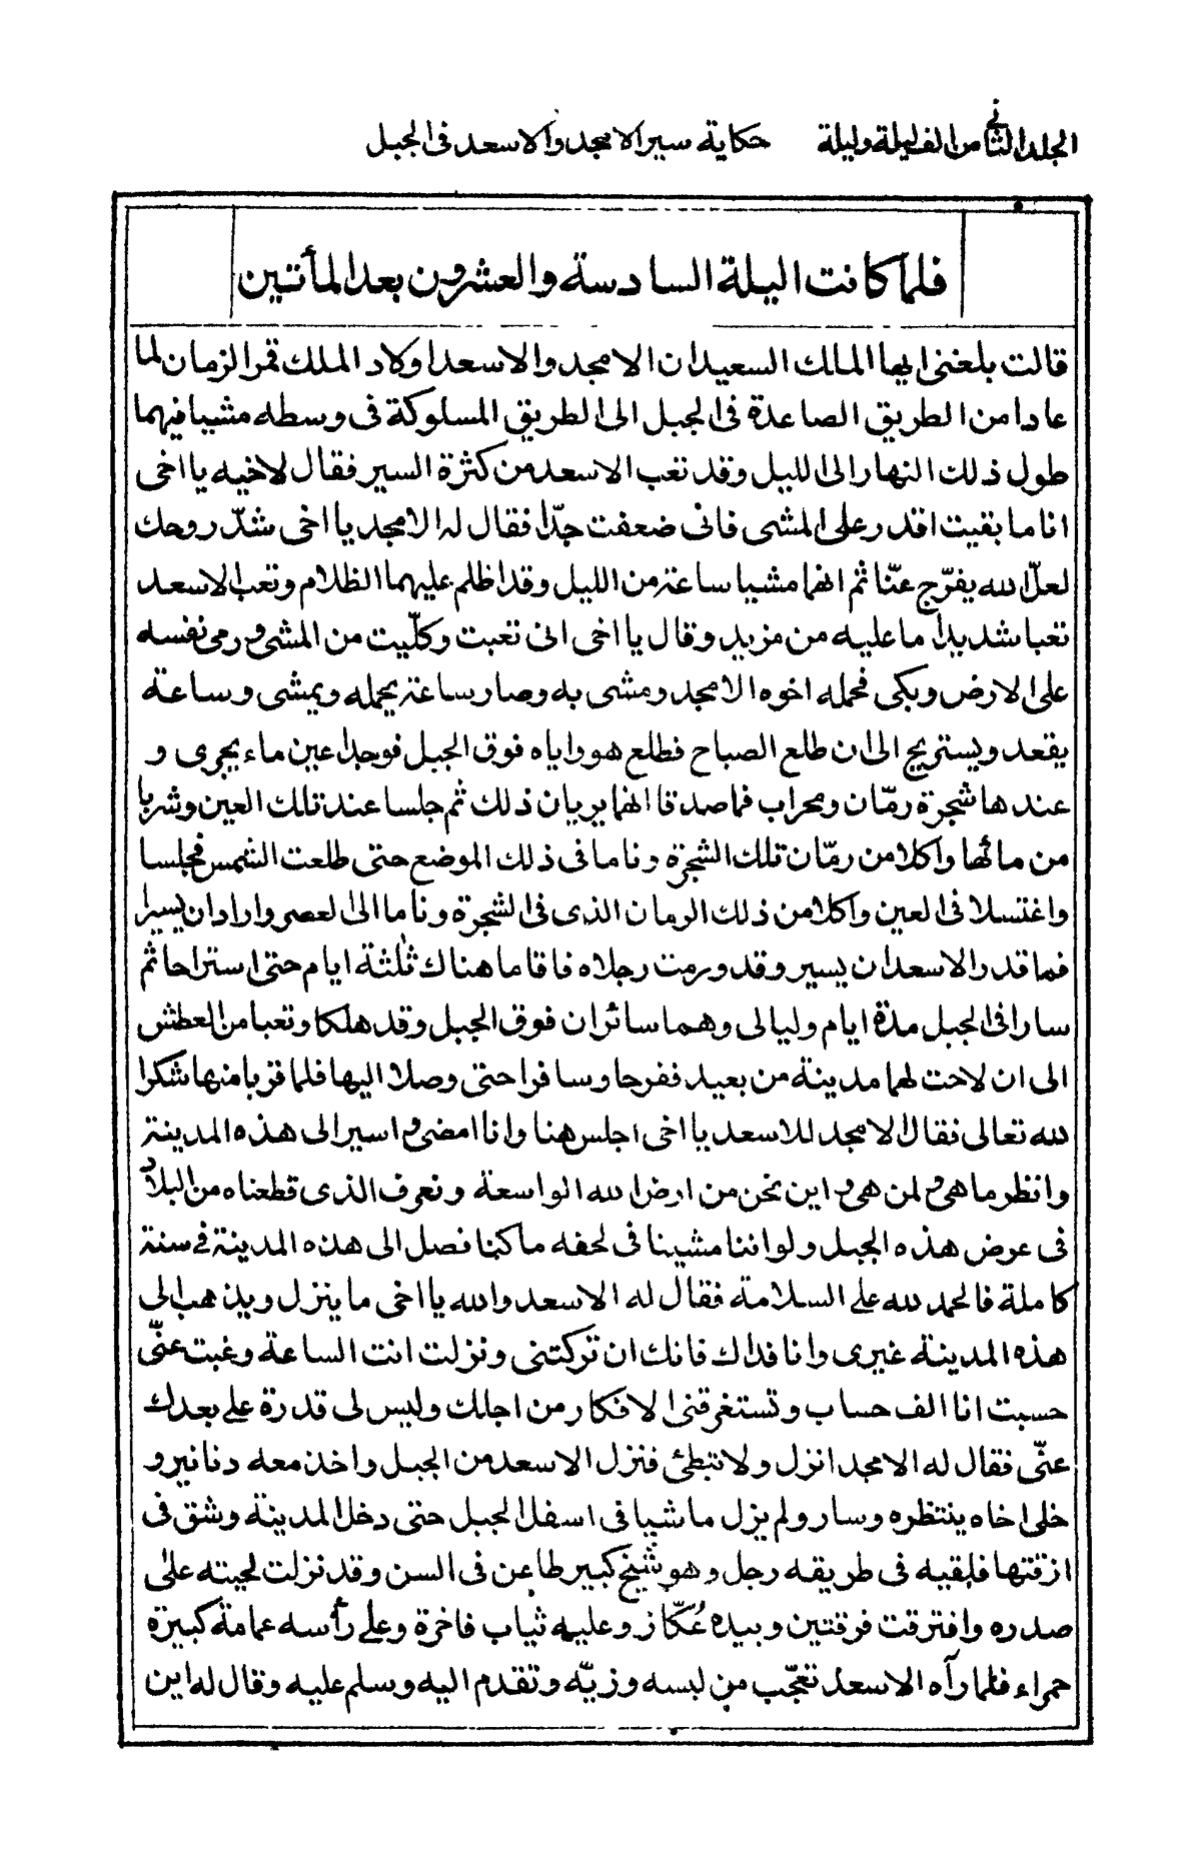 المجلد الثاني من الف ليلة وليلة حكاية سير الامجد والاسعد فى الجبل
فلما كانت اليلة السادسة والعشرون بعد المأتين
قالت بلغنى ايها الملك السعيد ان الامجد والاسعد اولاد الملك قمر الزمان لما
عادا من الطريق الصاعدة فى الجبل الى الطريق المسلوكة فى وسطه مشيا فيهما
طول ذلك النهار الى الليل وقد تعب الاسعد من كثرة السير فقال لاخيه يا اخى
انا ما بقيت اقدر على المشى فانى ضعفت جدّا فقال له الامجد يا اخى شدّ روحك
لعلّ الله يفرّج عنّا ثم انهما مشيا ساعة من الليل وقد اظلم عليهما الظلام وتعب الاسعد
تعبا شديدا ما عليه من مزيد وقال يا اخى انى تعبت وكلّيت من المشى و رمى نفسه
على الارض وبكى فحمله اخوه الامجد ومشى به وصار ساعة يحمله ويمشى وساعة
يقعد ويستريح الى ان طلع الصباح فطلع هو واياه فوق الجبل فوجدا عين ماء يجرى و
عندها شجرة رمّان ومحراب فما صدقا انهما يريان ذلك ثم جلسا عند تلك العين وشربا
من مائها واكلا من رمّان تلك الشجرة وناما فى ذلك الموضع حتى طلعت الشمس فجلسا
واغتسلا فى العين واكلا من ذلك الرمان الذى فى الشجرة وناما الى العصر وارادا ان يسيرا
فما قدر الاسعد ان يسير وقد ورمت رجلاه فاقاما هناك ثلثة ايام حتى استراحا ثم
سارا فى الجبل مدّة ايام وليالى وهما سائران فوق الجبل وقد هلكا وتعبا من العطش
الى ان لاحت لهما مدينة من بعيد ففرحا وسافرا حتى وصلا اليها فلما قربا منها شكرا
لله تعالى فقال الامجد للاسعد يا اخى اجلس هنا وانا امضى و اسير الى هذه المدينة
وانظر ما هى و لمن هى و اين نحن من ارض الله الواسعة ونعرف الذى قطعناه من البلاد
فى عرض هذه الجبل ولو اننا مشينا فى لحفه ما كنا فصل الى هذه المدينة فى سنة
كاملة فالحمد لله على السلامة فقال له الاسعد والله يا اخى ما ينزل ويذهب الى
هذه المدينة غيرى وانا فداك فانك ان تركتنى ونزلت انت الساعة وغبت عنّى
حسبت انا الف حساب وتستغرقنى الافكار من اجلك وليس لى قدرة على بعدك
عنّى فقال له الامجد انزل ولا تبطئ فنزل الاسعد من الجبل واخذ معه دنانير و
خلى اخاه ينتظره وسار ولم يزل ماشيا فى اسفل الجبل حتى دخل المدينة وشق فى
ازقتها فلقيه فى طريقه رجل وهو شيخ كبير طاعن فى السن وقد نزلت لحيته على
صدره وافترقت فرقتين وبيده عُكّاز وعليه ثياب فاخرة وعلى رأسه عمامة كبيرة
حمراء فلما رآه الاسعد تعجّب من لبسه وزيّه وتقدم اليه وسلم عليه وقال له اين